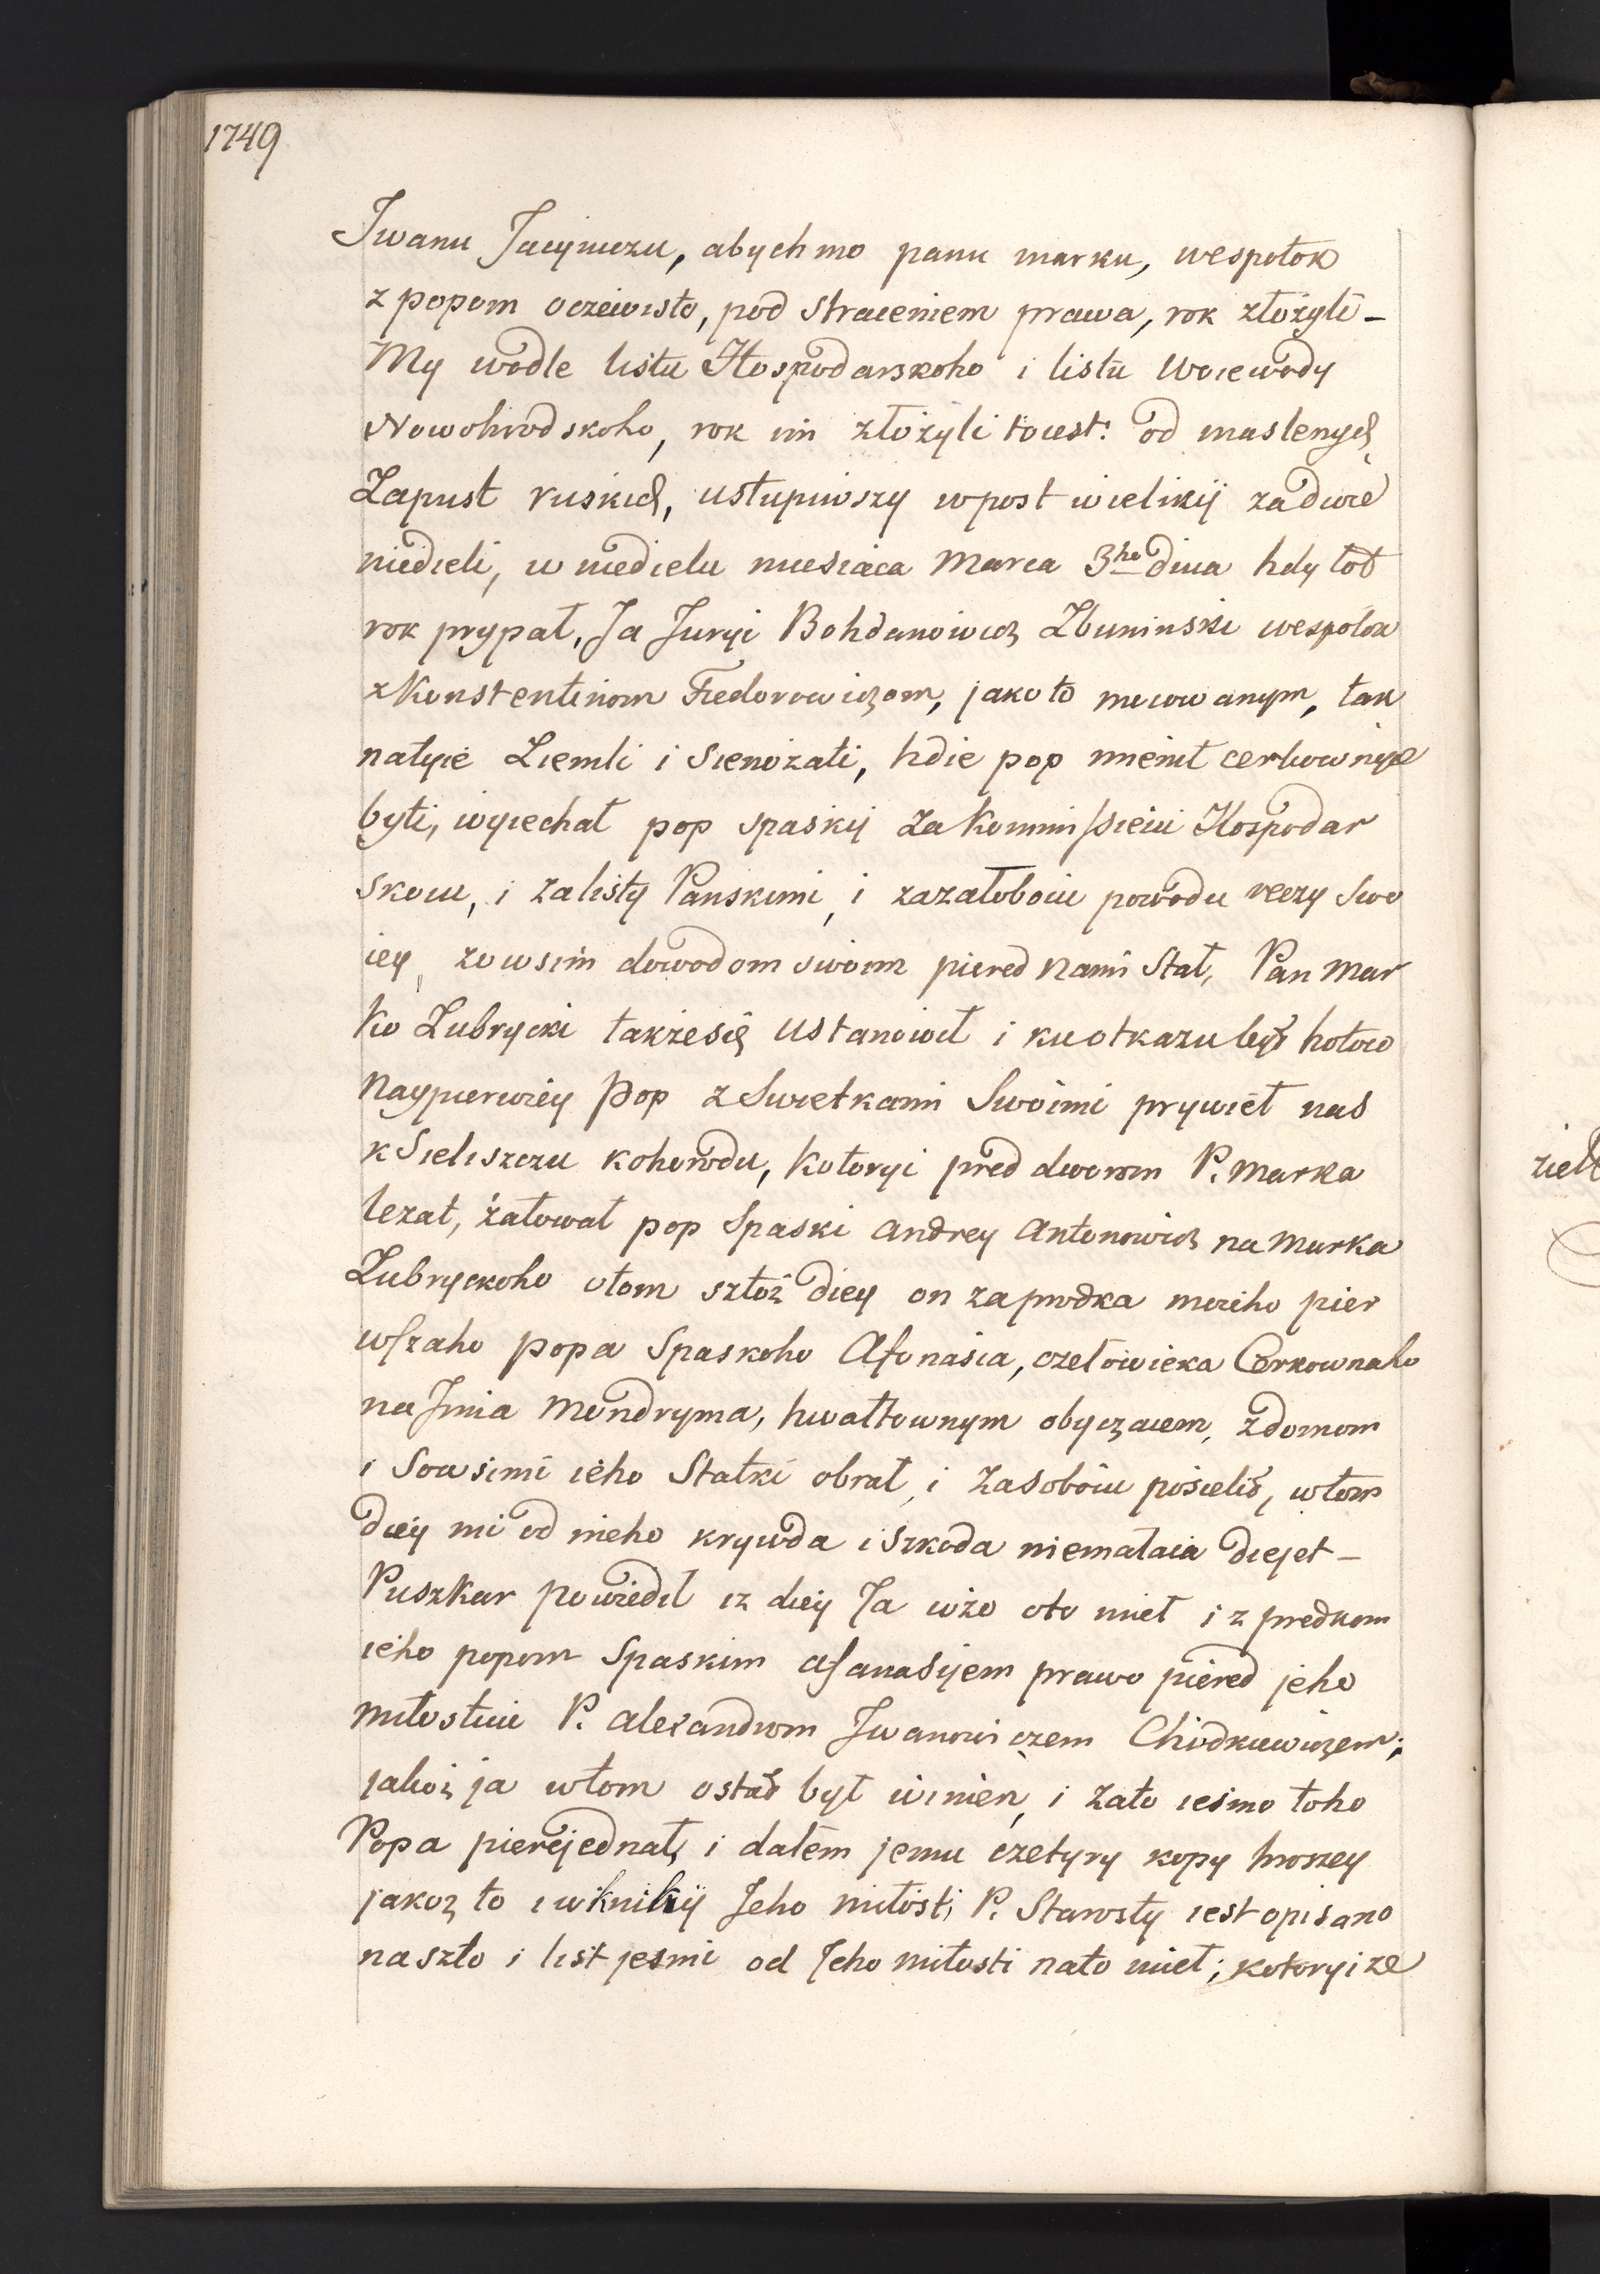 1749
Iwanu Jacyniczu, abychmo panu marku, wespołok
z popom oczewisto, pod straceniem prawa, rok złożyli –
My wodle listu Hospodarskoho i listu Woiewody
Nowohrodskoho, rok im złożyli toiest: od maslenych
Zapust ruskich, ustupiwszy wpost wielikij zadwie
niedieli, w niedielu miesiaca Marca 3ho dnia hdy tot
rok prypał, Ja Juryi Bohdanowicz Zbuninski wespołok
z Konstentinom Fiedorowiczom, jako to mianowanym, tak
natyie Ziemli i Sienożati, hdie pop mienit cerkownyie
byti, wyiechał pop spaskij za Kommissieiu Hospodar
skoiu, i zalisty Panskimi, i zazałoboiu powodu reczy swo
iey, zowsim dowodom swoim piered nami Stał, Pan Mar
ko Zubrycki takżesię ustanowił i kuotkazu był hotow
Naypierwiey Pop z Swietkami Swoimi prywiel nas
k Sieliszczu kohorodu, kotoryi pred dworom P. Marka
leżał, żałował pop Spaski Andrey Antonowicz na Marka
Zubryckoho otom sztoż diey on zaprodka moieho pier
wszaho popa Spaskoho Afonasia, czełowieka Cerkownaho
na Jmia Mondryma, hwałtownym obyczaiem, z domom
i Sowsimi ieho Statki obrał, i zasoboiu posielił, wtom
diey mi od nieho krywda i szkoda niemałaia diejet –
Puszkar powiedił iż diey Ja wżo oto mieł i z predkom
ieho popom Spaskim Afanasijem prawo piered jeho
miłostiu P. Alexandrom Iwanowiczem Chodkiewiczem;
jakoż ja wtom ostał był winien, i zato iesmo toho
Popa pierejednał, i dałem jemu czetyry kopy hroszey
jakoż to i wknikij Jeho miłosti P. Starosty iest opisano
naszto i list jesmi od Jeho miłosti nato mieł; kotoryi ze